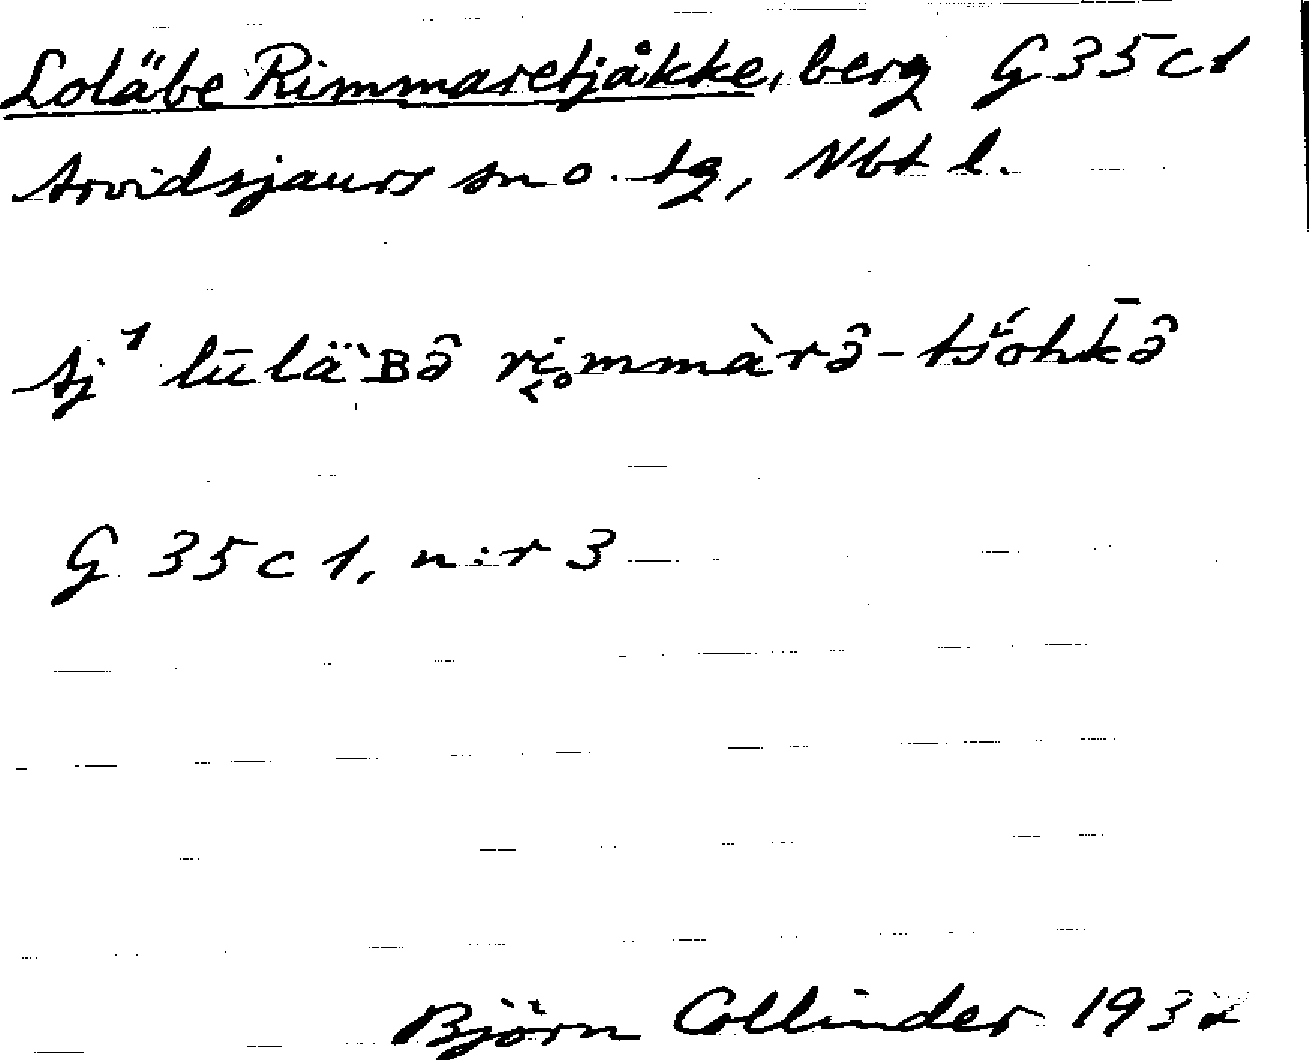 Loläbe Rimmaretjåkke, berg G 35 c 1
Arvidsjaurs sn o. tg, Nbt l.
Aj¹ lūlä̀ʙə̑ ri̭mmàrə̑-tśŏ́hk̄ə̑
G 35 c 1, n:r 3
Björn Collinder